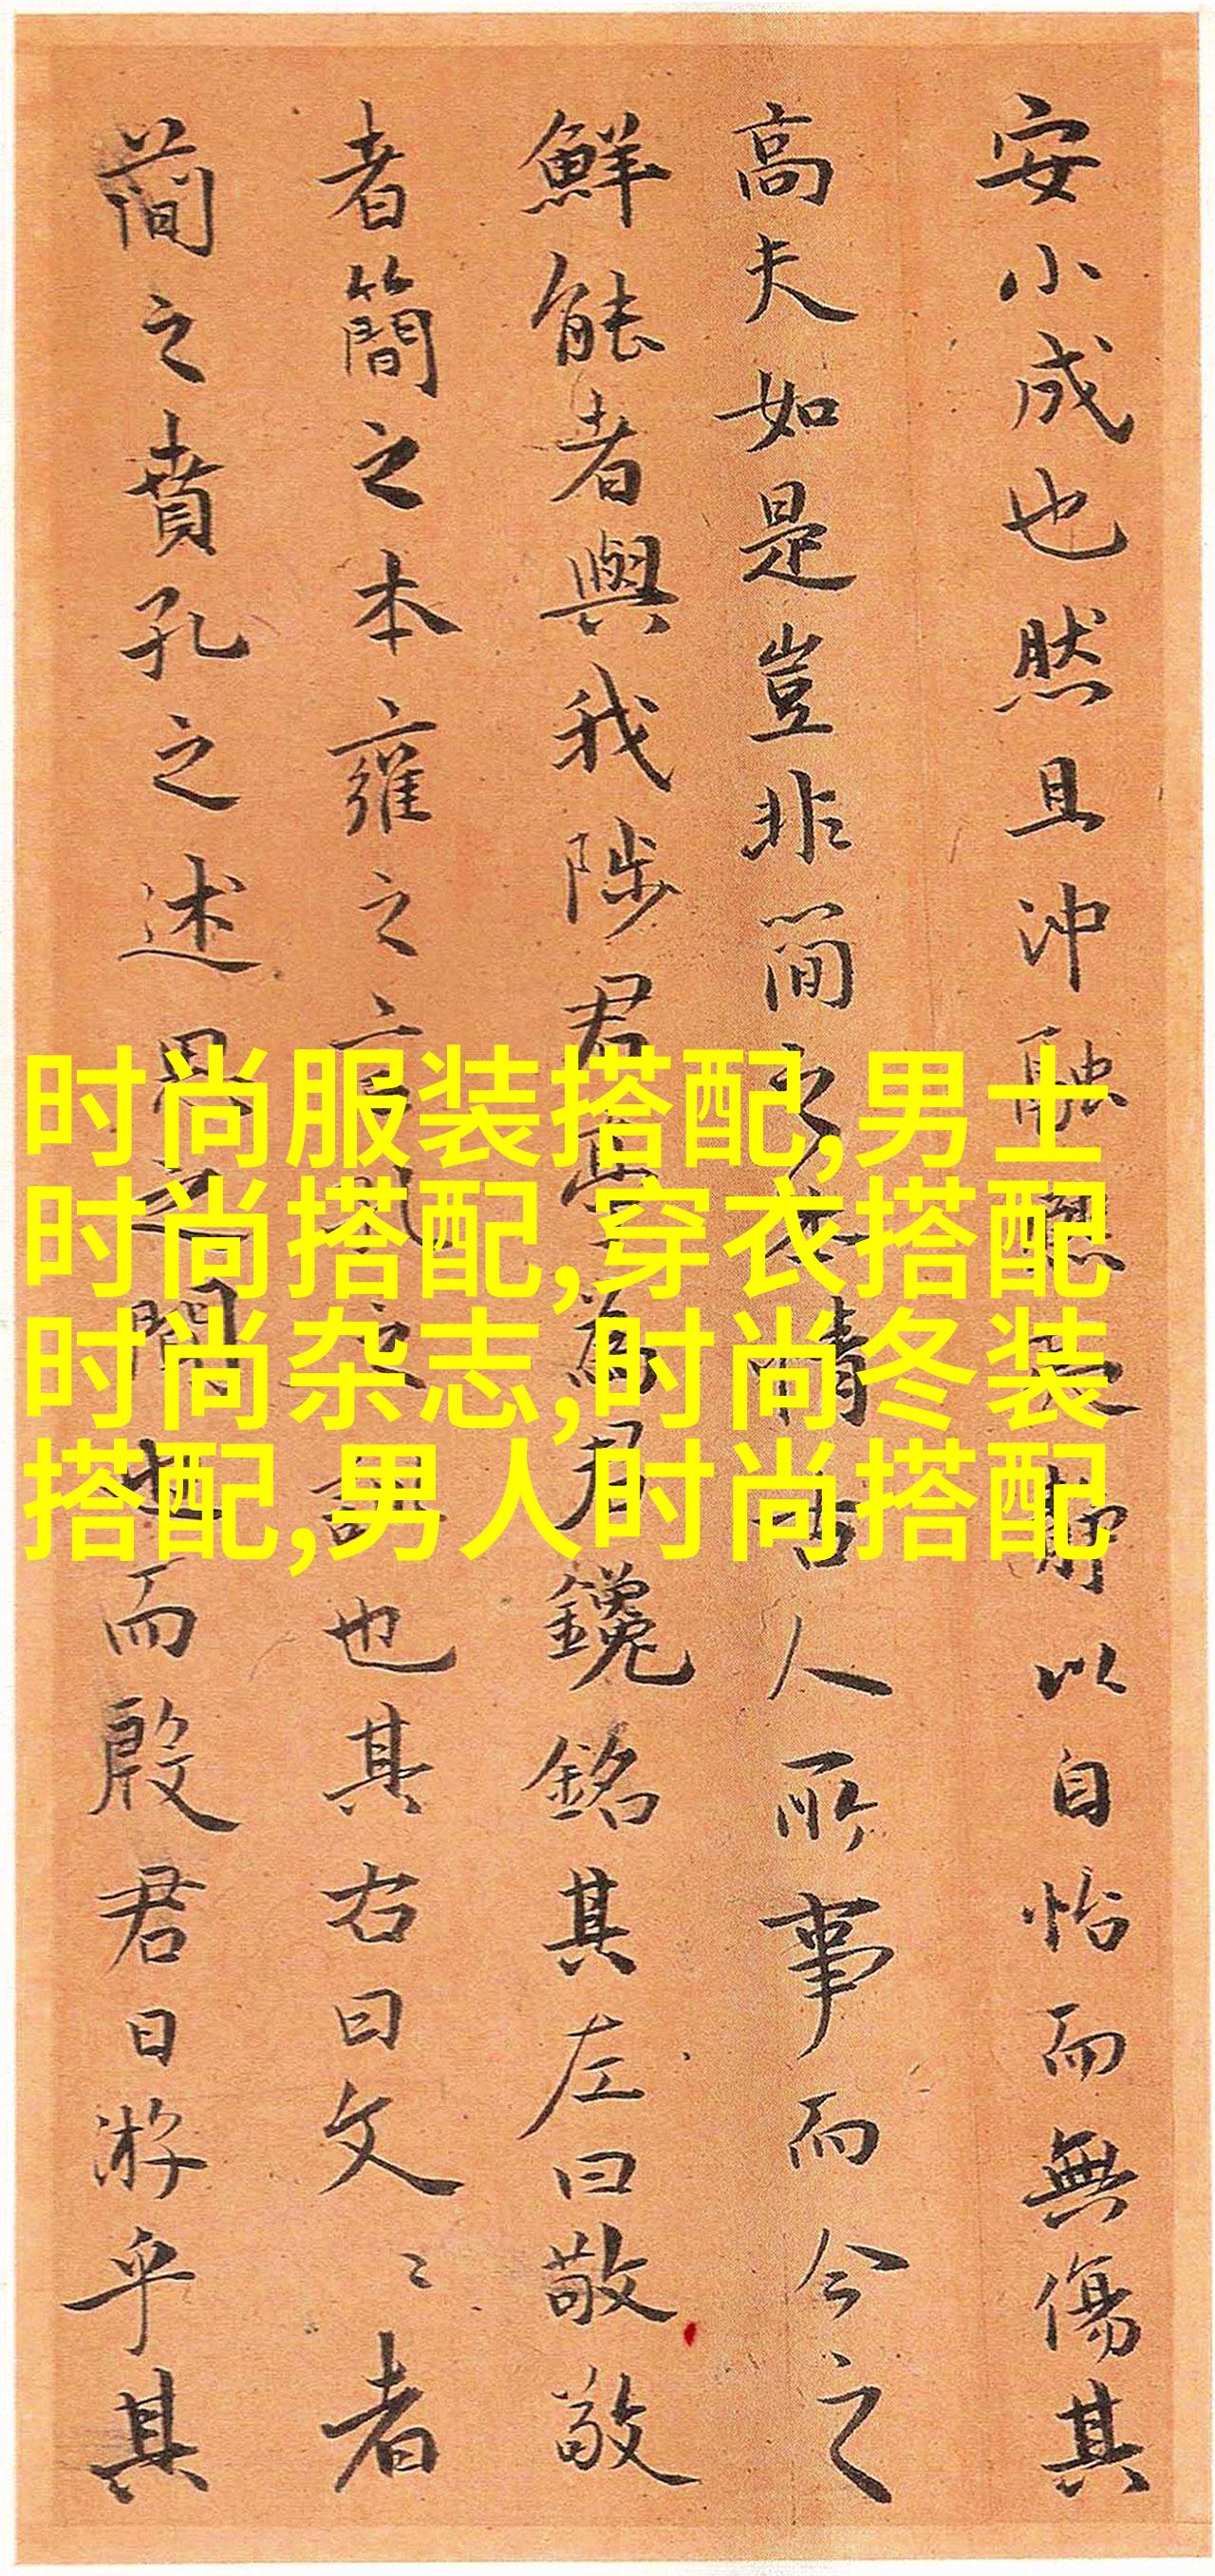 安小成也然且沖融以自怡而無傷其
高夫如是豈非簡之本情古人所事而今之
鮮能者與我陟君為君鑱銘其左曰敬敬
者簡之本雍之言也其右曰文〻者
簡之賁孔之述之間也而殷君日游乎其
时尚服装搭配,男士
时尚搭配,穿衣搭配
时尚杂志,时尚冬装
搭配,男人时尚搭配